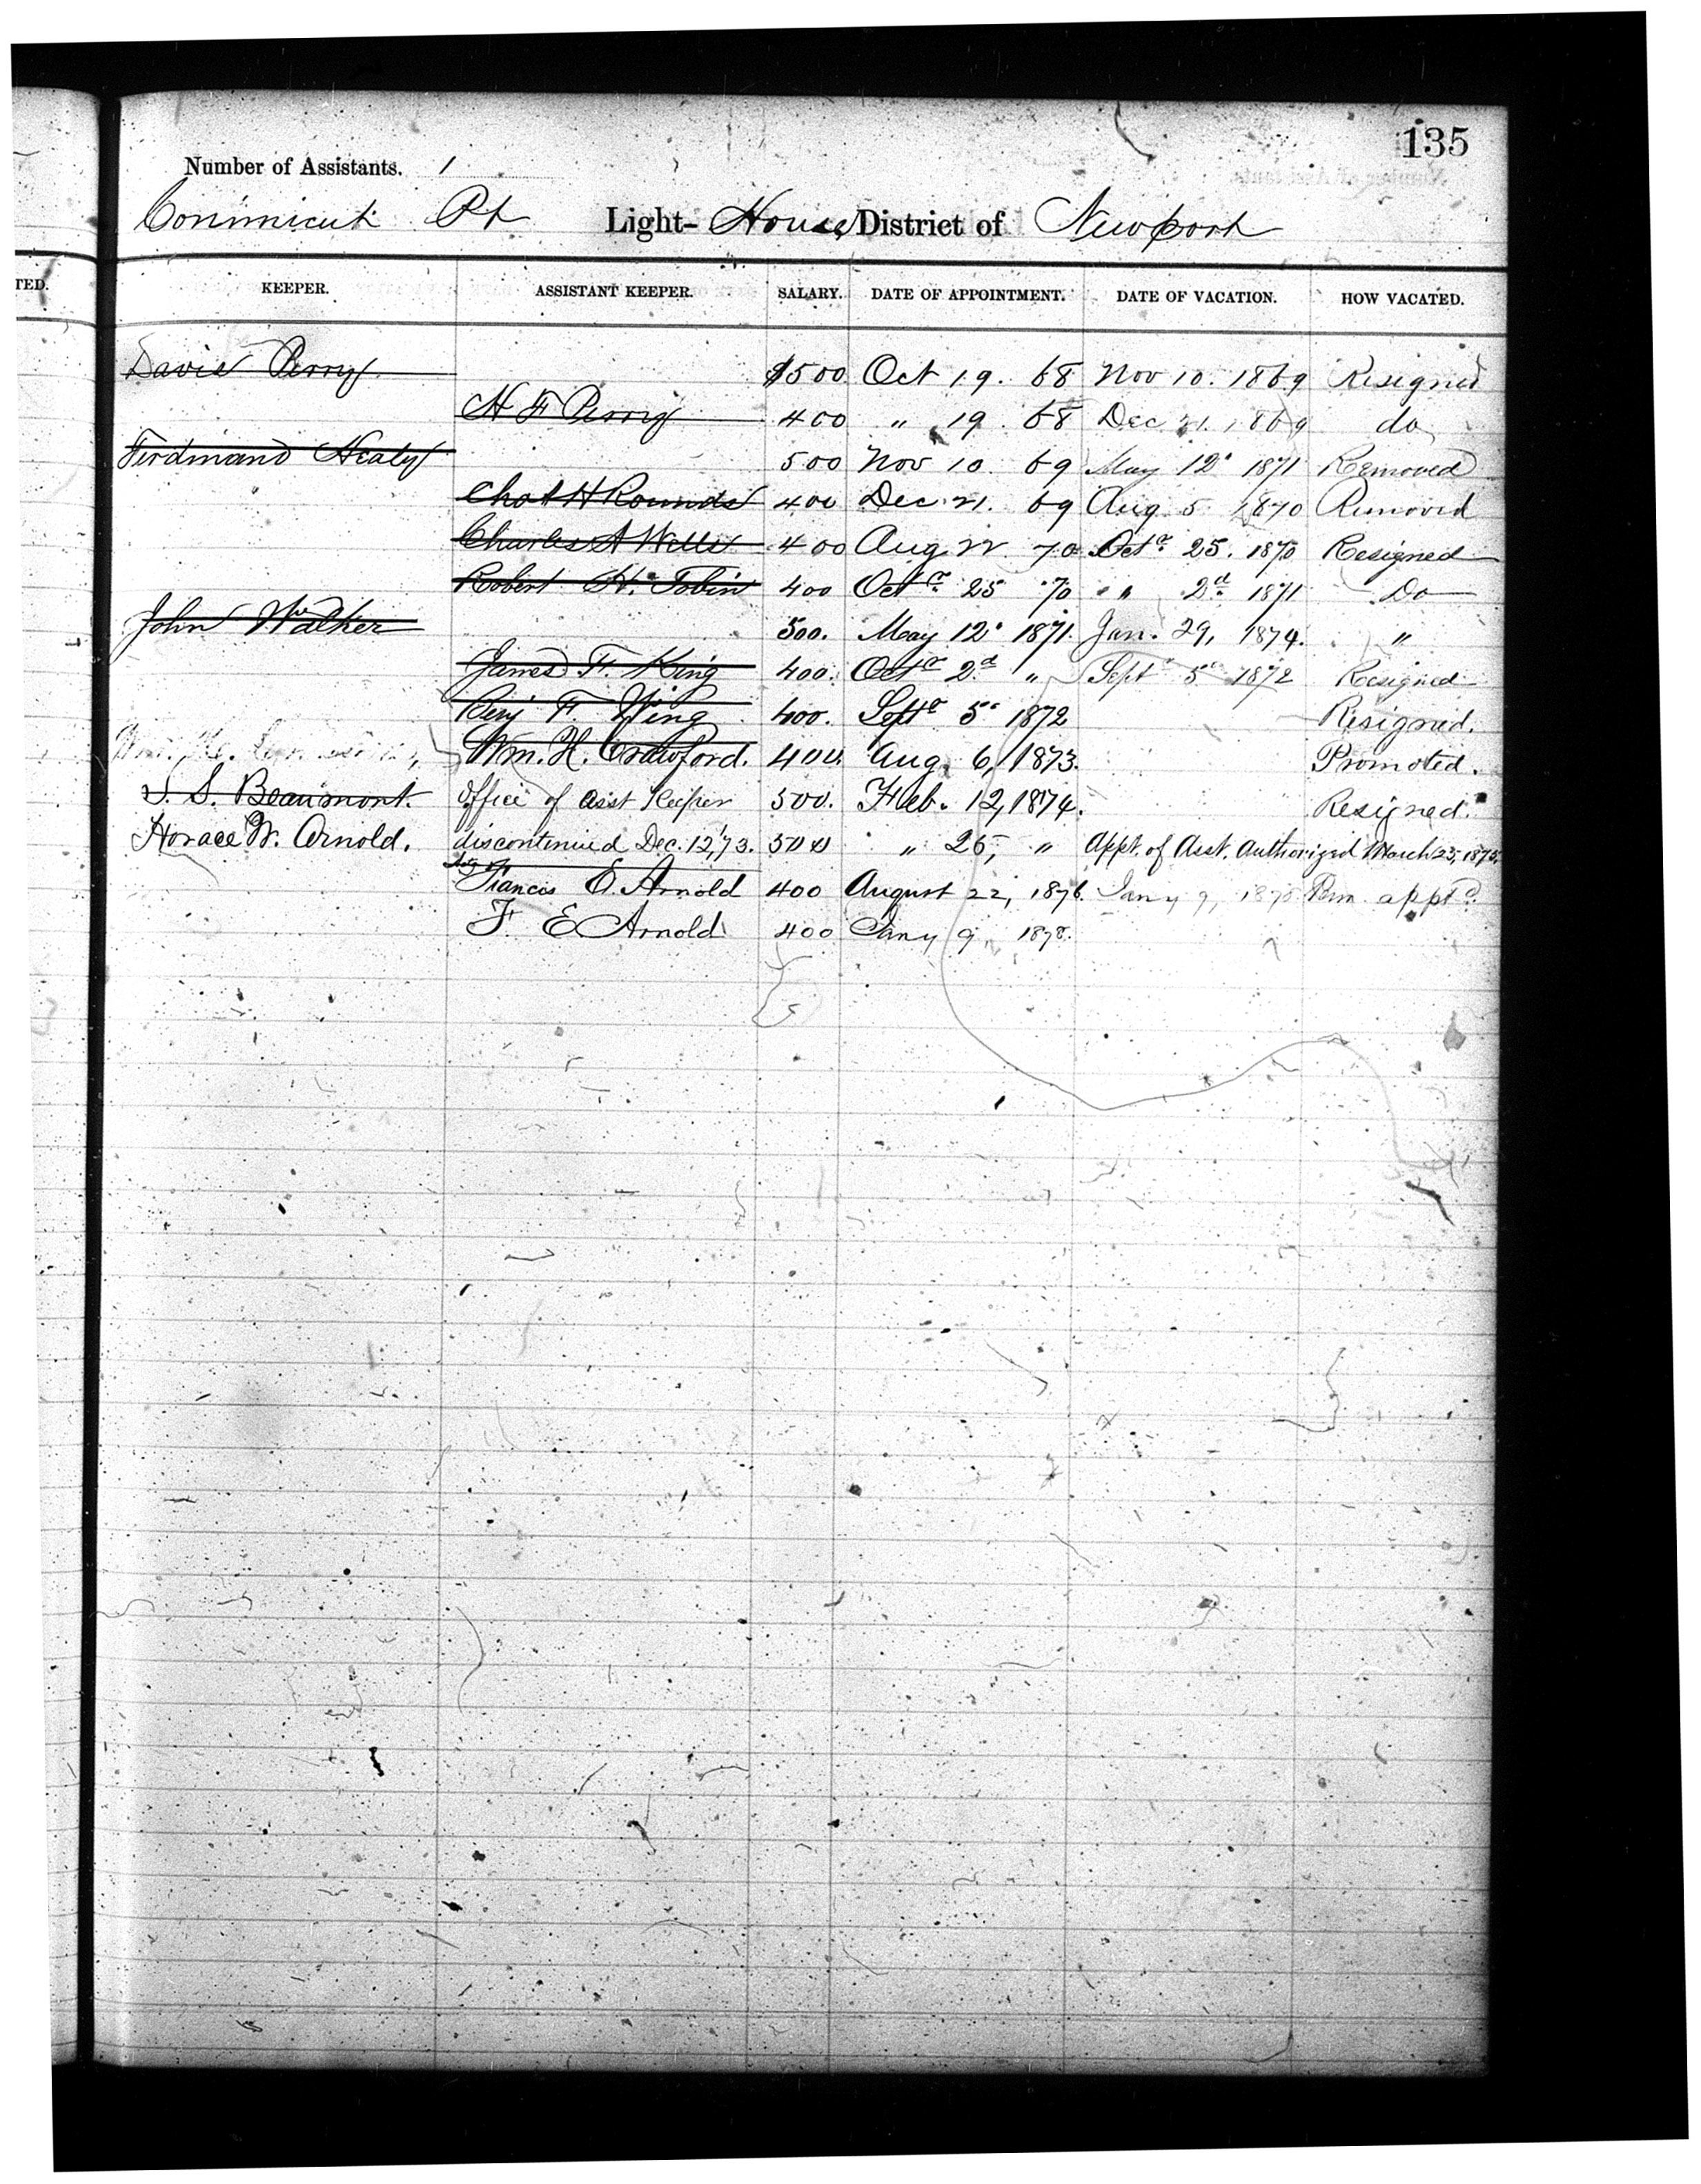 135
Number of Assistants. 1
Conimicut Pt Light-House, District of Newport
TED.
KEEPER. ASSISTANT KEEPER. SALARY. DATE OF APPOINTMENT. DATE OF VACATION. HOW VACATED.
Davis Perry $500 Oct 19. 68 Nov 10. 1869 Resigned
H F Perry 400 " 19. 68 Dec 21. 1869 do
Ferdinand Healy 500 Nov 10. 69 May 12. 1871 Removed
Chas H Rounds 400 Dec. 21. 69 Aug 5 1870 Removed
Charles A Wells 400 Aug 22 70 Octr. 25. 1870 Resigned
Robert H. Tobin 400 Octr. 25 70 " 2d. 1871 Do
John W. Walker 500. May 12. 1871. Jan. 29, 1874. "
James F. King 400. Octr 2d " Sept 5 1872 Resigned
Benj F. Wing 400. Septr 5 1872 Resigned.
Wm. H. Crawford. 400. Aug. 6, 1873. Promoted.
S. S. Beaumont. Office of Asst Keeper 500. Feb. 12, 1874. Resigned.
Horace W. Arnold. discontinued Dec. 12, '73. 500 " 26, " Appt. of Asst. Authorized March 25, 1875.
Francis E. Arnold 400 August 22, 1876. Jany 9, 1878 Perm. apptd.
F. E Arnold 400 Jany 9, 1878.